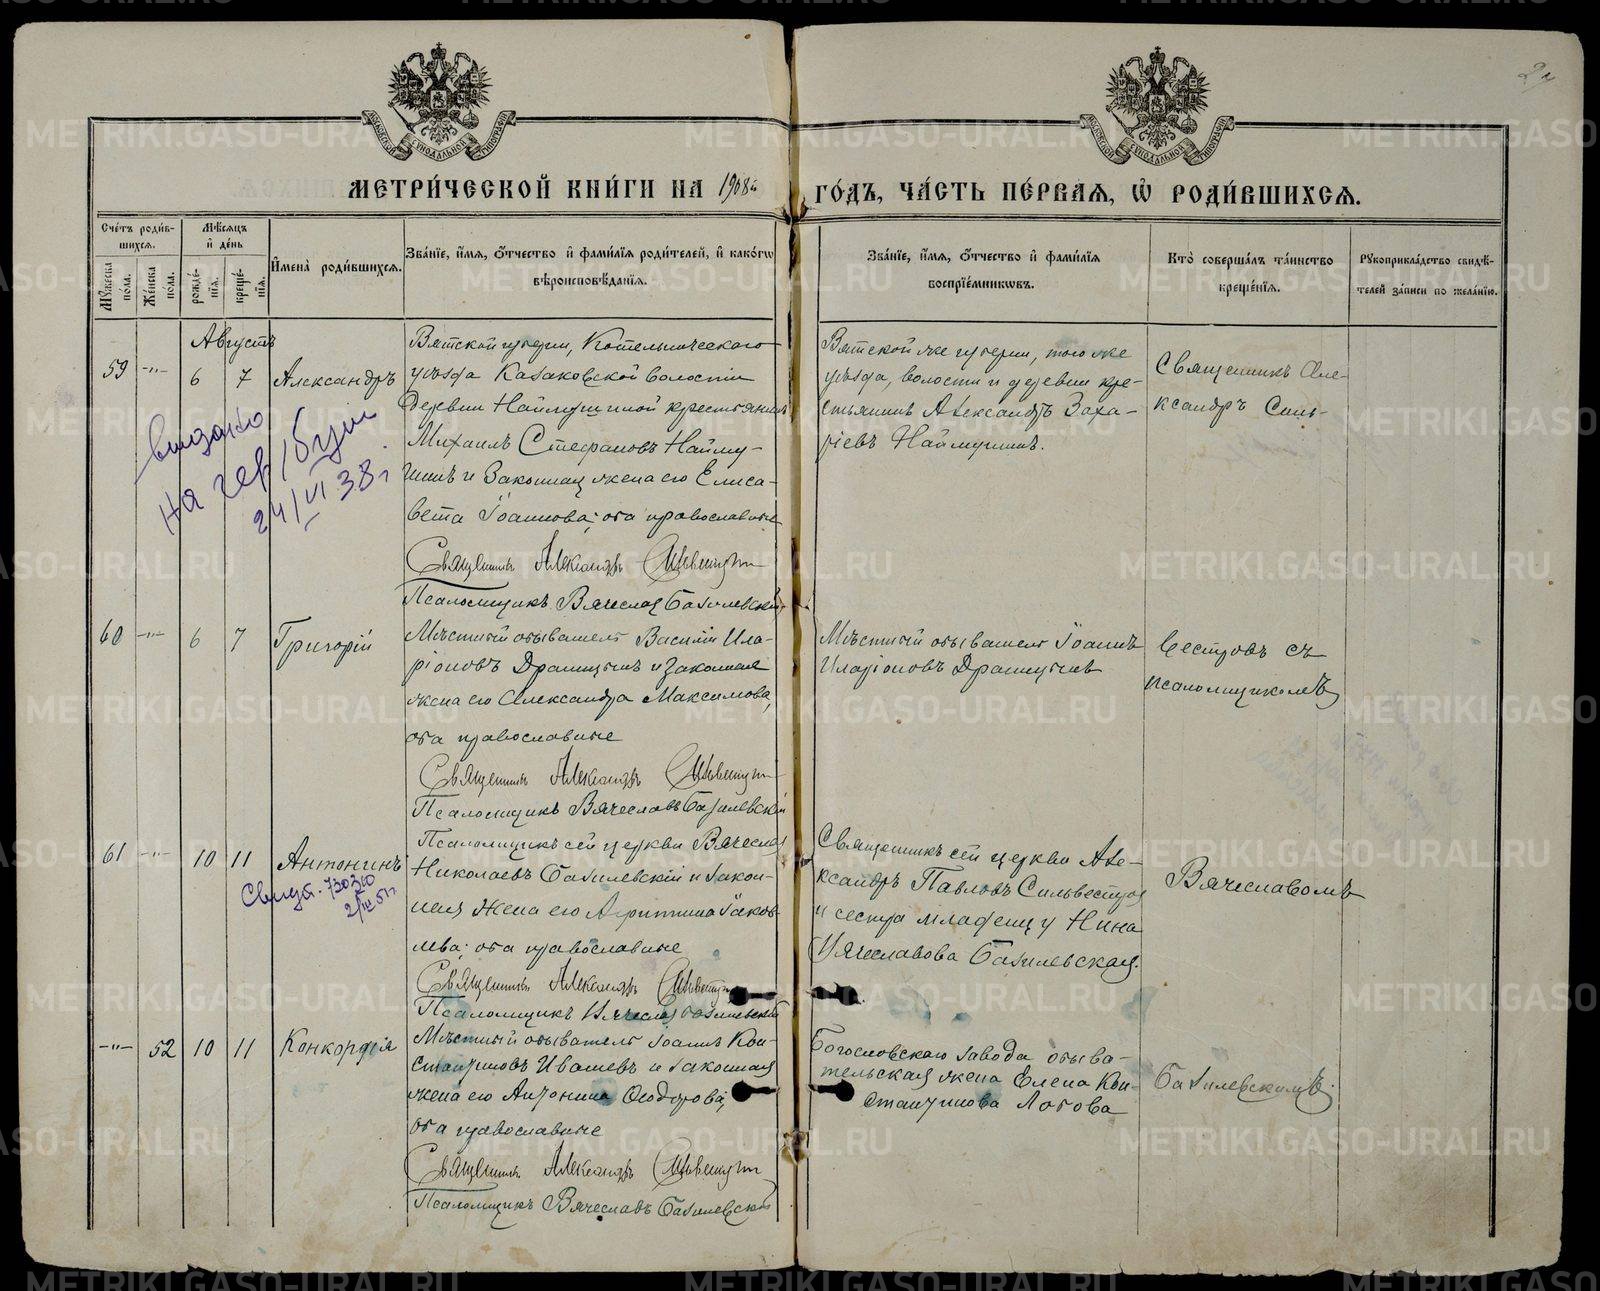 МЕТРИ́ЧЕСКОЙ КНИ́ГИ НА 1908й ГО́ДЪ, ЧА́СТЬ ПЕ́РВАЯ, Ѡ҆ РОДИ́ВШИХСѦ.
Сче́тъ роди́в-
шихсѧ.
Мѣ́сѧцъ
и҆ де́нь
И҆мена̀ роди́вшихсѧ.
Зва́нїе, и҆́мѧ, ѻ҆́тчество и҆ фами́лїѧ роди́телей, и҆ како́гѡ
вѣроисповѣ́данїѧ.
Зва́нїе, и҆́мѧ, ѻ҆́тчество и҆ фами́лїѧ
воспрїе́мникѡвъ.
Кто̀ соверша́лъ та́инство
креще́нїѧ.
Рꙋкоприкла́дство свидѣ́-
телей за́писи по жела́нїю.
Мꙋ́жеска
по́ла.
Же́нска
по́ла.
рожде́-
нїѧ.
креще́-
нїѧ.
Августъ
59 -"- 6 7 Александръ
Вятской губерніи, Котельническаго
уѣзда Казаковской волости
деревни Наймушиной крестьянинъ
Михаилъ Стефановъ Найму-
шинъ и законная жена его Елиса-
вета Іоаннова; оба православные
Священникъ Александръ Сильвестровъ
Псаломщикъ Вячеславъ Базилевскій
Вятской же губерніи, того же
уѣзда, волости и деревни кре-
стьянинъ Александръ Заха-
ріевъ Наймушинъ.
Священникъ Але-
ксандръ Силь-
выдано
на гер/бум
24/VI 38 г
60 -"- 6 7 Григорій
Мѣстный обыватель Василій Ила-
ріоновъ Драницынъ и законная
жена его Александра Максимова,
оба православные
Священникъ Александръ Сильвестровъ
Псаломщикъ Вячеславъ Базилевскій
Мѣстный обыватель Іоаннъ
Иларіоновъ Драницынъ
вестровъ съ
псаломщикомъ
61 -"- 10 11 Антонинъ
Псаломщикъ сей церкви Вячеславъ
Николаевъ Базилевскій и закон-
ная жена его Агриппина Іаков-
лева; оба православные
Священникъ Александръ Сильвестровъ
Псаломщикъ Вячеславъ Базилевскій
Священникъ сей церкви Але-
ксандръ Павловъ Сильвестровъ
и сестра младенцу Нина
Вячеславова Базилевская.
Вячеславомъ
-"- 52 10 11 Конкордія
Мѣстный обыватель Іоаннъ Кон-
стантиновъ Ивашевъ и законная
жена его Антонина Ѳеодорова,
оба православные
Священникъ Александръ Сильвестровъ
Псаломщикъ Вячеславъ Базилевскій
Богословскаго завода обыва-
тельская жена Елена Кон-
стантинова Лобова
Базилевскимъ.
METRIKI.GASO-URAL.RU